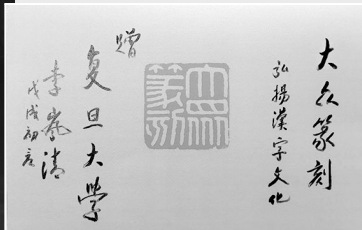 大众篆刻
弘揚漢字文化
大众篆刻
贈
复旦大學
李嵐清
戊戌初夏